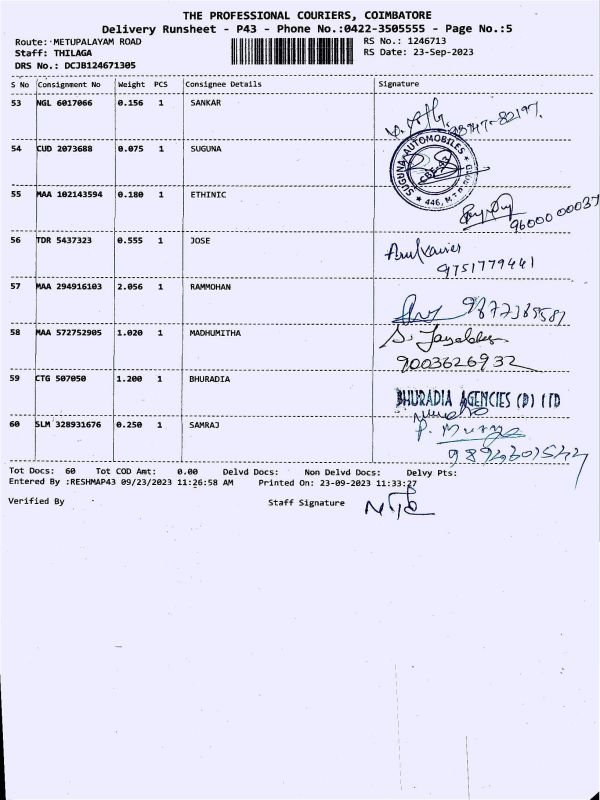 THE PROFESSIONAL COURIERS, COIMBATORE
Delivery Runsheet - P43 - Phone No.:0422-3505555 - Page No.:5
Route: METUPALAYAM ROAD
RS No.: 1246713
Staff: THILAGA
RS Date: 23-Sep-2023
DRS No.: DCJB124671305
S No Consignment No Weight PCS Consignee Details Signature
53 NGL 6017066 0.156 1 SANKAR
98947-82197.
54 CUD 2073688 0.075 1 SUGUNA
SUGUNA AUTOMOBILES
CBE-43
446, M.T.P.
55 MAA 102143594 0.180 1 ETHINIC
9600000037
56 TDR 5437323 0.555 1 JOSE
Arul Xavier
9751779441
57 MAA 294916103 2.056 1 RAMMOHAN
58 MAA 572752905 1.020 1 MADHUMITHA
9003626932
59 CTG 507050 1.200 1 BHURADIA
BHURADIA AGENCIES (P) LTD
60 SLM 328931676 0.250 1 SAMRAJ
Tot Docs: 60 Tot COD Amt: 0.00 Delvd Docs: Non Delvd Docs: Delvy Pts:
Entered By :RESHMAP43 09/23/2023 11:26:58 AM Printed On: 23-09-2023 11:33:27
Verified By Staff Signature